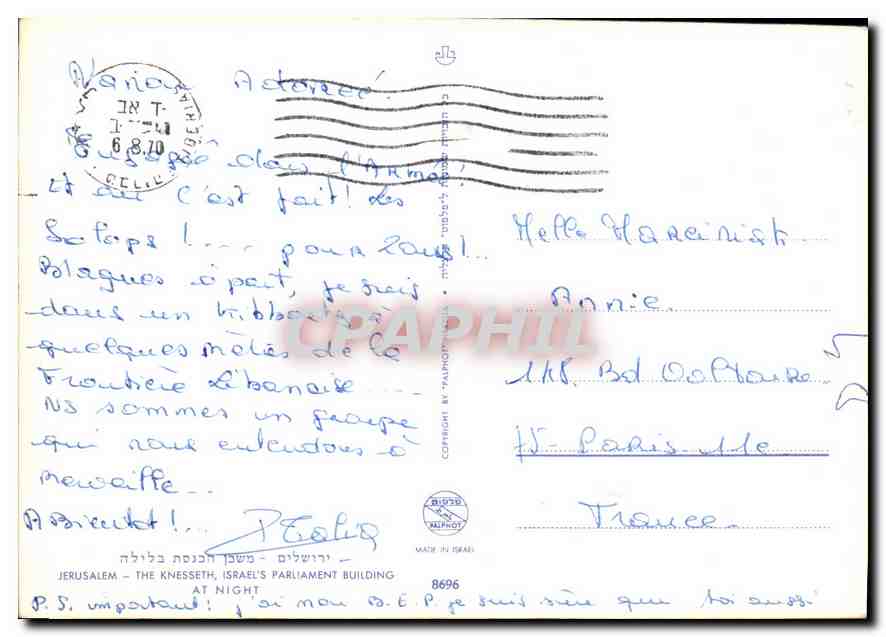 Adorée!
ד אב
6.8.70
GELIL
Engagé dans l'Armée!
Et oui c'est fait! Les
Salaps!.... pour 2 ans!...
Blagues à part, je suis
dans un kibboutz à
quelques mètres de la
Frontière Libanaise....
NS sommes un groupe
qui nous entendons à
merveille...
A Bientot!...
ירושלים - משכן הכנסת בלילה
JERUSALEM – THE KNESSETH, ISRAEL'S PARLIAMENT BUILDING
AT NIGHT
8696
P.S. important: j'ai mon B.E.P. je suis sûre que toi aussi
COPYRIGHT BY "PALPHOT" HERZLIA
פלפוט
PALPHOT
MADE IN ISRAEL
Melle
Annie.
Bd Voltaire.
75-PARIS-11e
France.
CPAPHIL